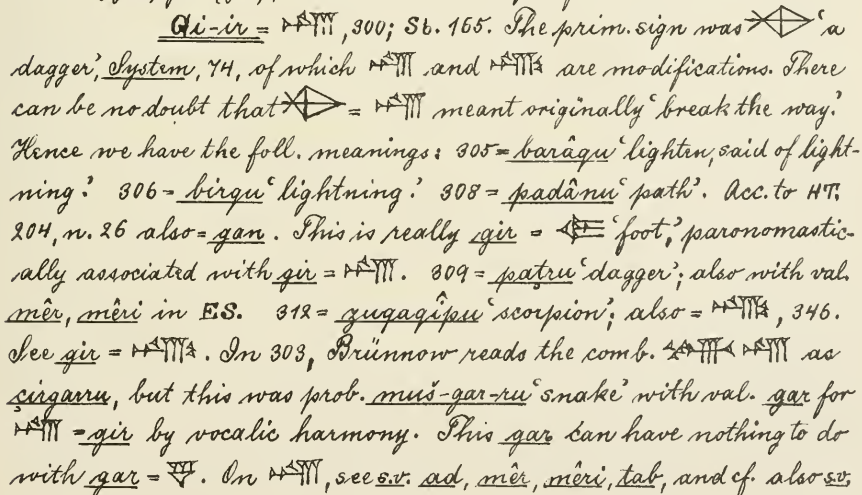 Gi-ir = 𒄈, 300; Sb. 165. The prim. sign was 'a
dagger', System, 74, of which 𒄈 and 𒄉 are modifications. There
can be no doubt that = 𒄈 meant originally 'break the way.'
Hence we have the foll. meanings: 305 = barâqu 'lighten, said of light-
ning.' 306 = birqu 'lightning.' 308 = padânu 'path'. Acc. to HT.
204, n. 26 also = gan. This is really gir = 'foot,' paronomastic-
ally associated with gir = 𒄈. 309 = paṭru 'dagger'; also with val.
mêr, mêri in ES. 312 = zugaqîpu 'scorpion'; also = 𒄉, 346.
See gir = 𒄉. In 303, Brünnow reads the comb. 𒈲 𒄈 as
çirgarru, but this was prob. muš-gar-ru 'snake' with val. gar for
𒄈 = gir by vocalic harmony. This gar can have nothing to do
with gar = 𒃻. On 𒄈, see s.v. ad, mêr, mêri, tab, and cf. also s.v.